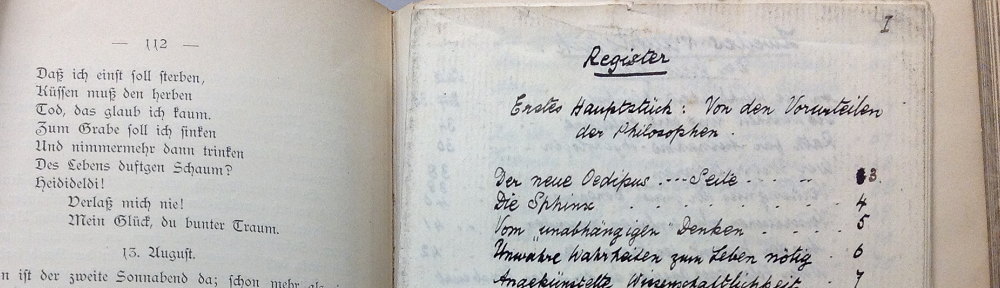 — 112 —
Daß ich einst soll sterben,
Küssen muß den herben
Tod, das glaub ich kaum.
Zum Grabe soll ich sinken
Und nimmermehr dann trinken
Des Lebens duftgen Schaum?
Heidideldi!
Verlaß mich nie!
Mein Glück, du bunter Traum.
13. August.
n ist der zweite Sonnabend da; schon mehr als
I
Register
Erstes Hauptstück: Von den Vorurteilen
der Philosophen.
Der neue Oedipus . --- Seite . . . . 3.
Die Sphinx . . . . . . . 4
Vom "unabhängigen" Denken . . . . 5
Unwahre Wahrheiten zum Leben nötig . 6
Angekünstelte Wissenschaftlichkeit . 7